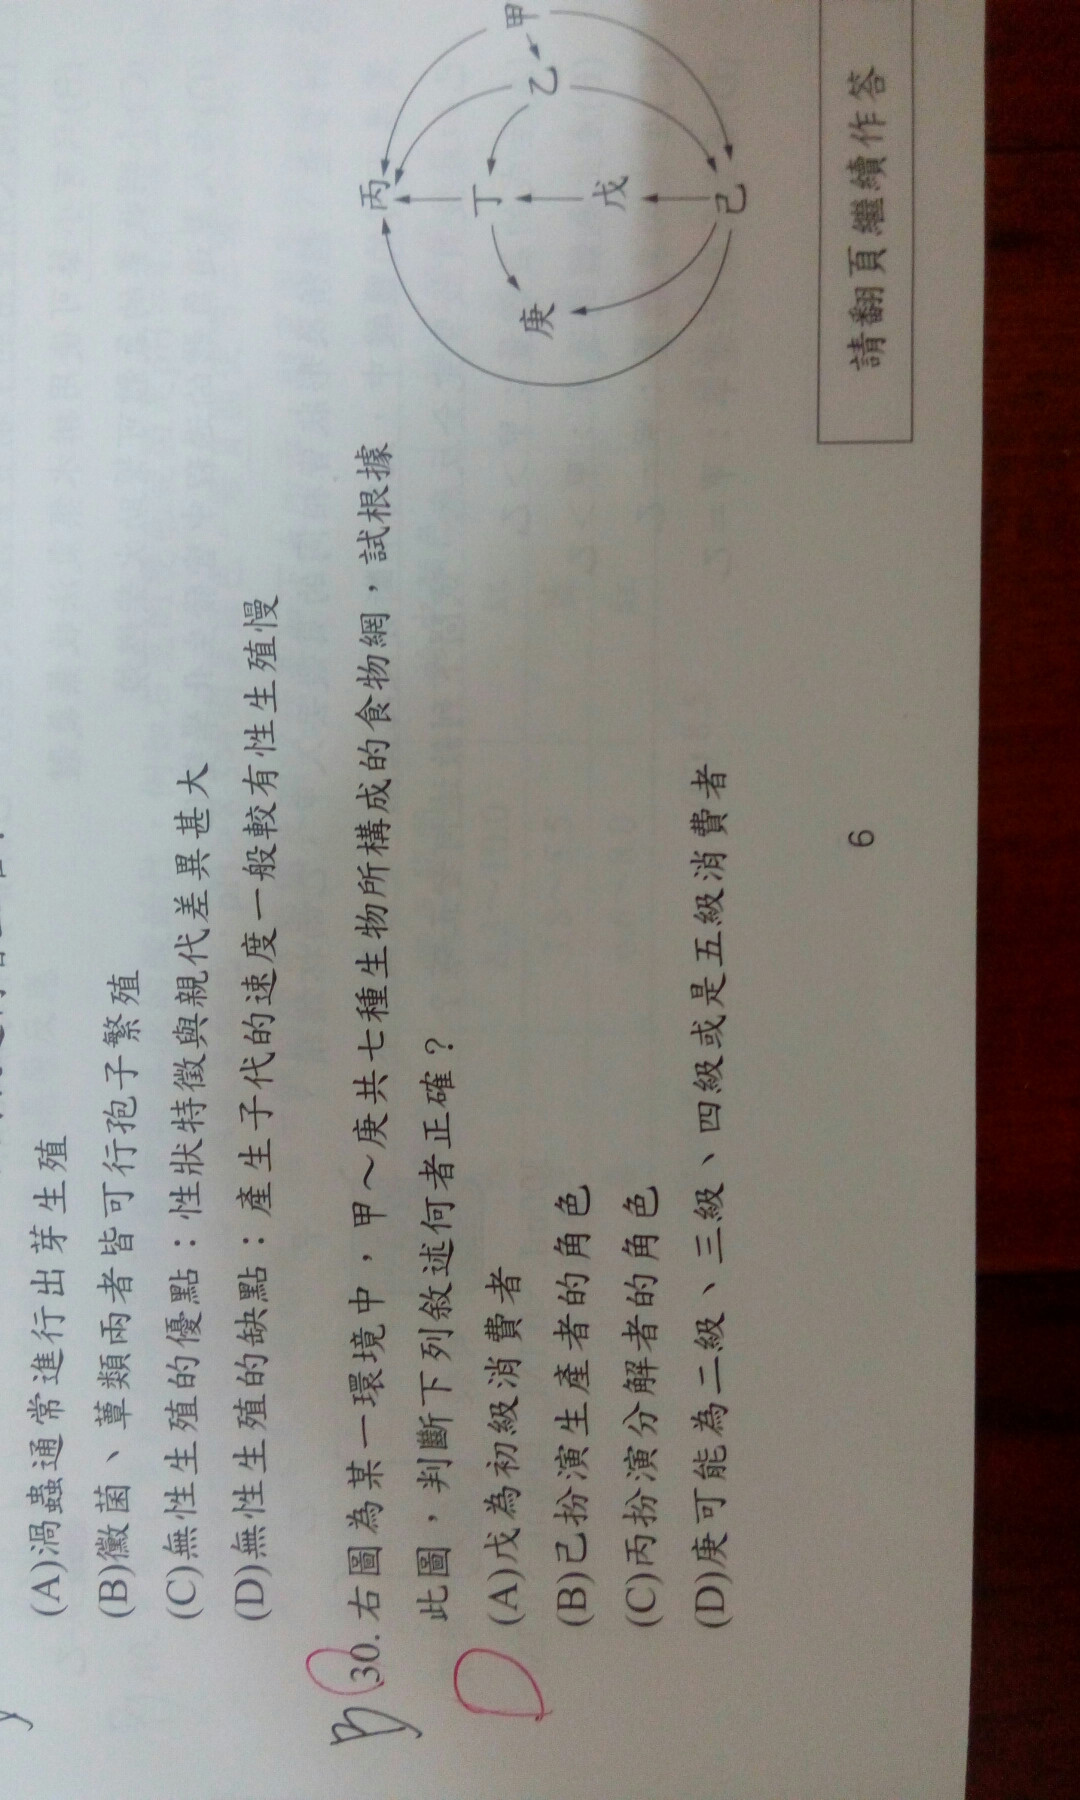 (A)渦蟲通常進行出芽生殖
(B)黴菌、蕈類兩者皆可行孢子繁殖
(C)無性生殖的優點：性狀特徵與親代差異甚大
(D)無性生殖的缺點：產生子代的速度一般較有性生殖慢
B 30. 右圖為某一環境中，甲～庚共七種生物所構成的食物網，試根據
此圖，判斷下列敘述何者正確？
D
(A)戊為初級消費者
(B)己扮演生產者的角色
(C)丙扮演分解者的角色
(D)庚可能為二級、三級、四級或是五級消費者
丙
甲
乙
丁
戊
庚
己
6
請翻頁繼續作答